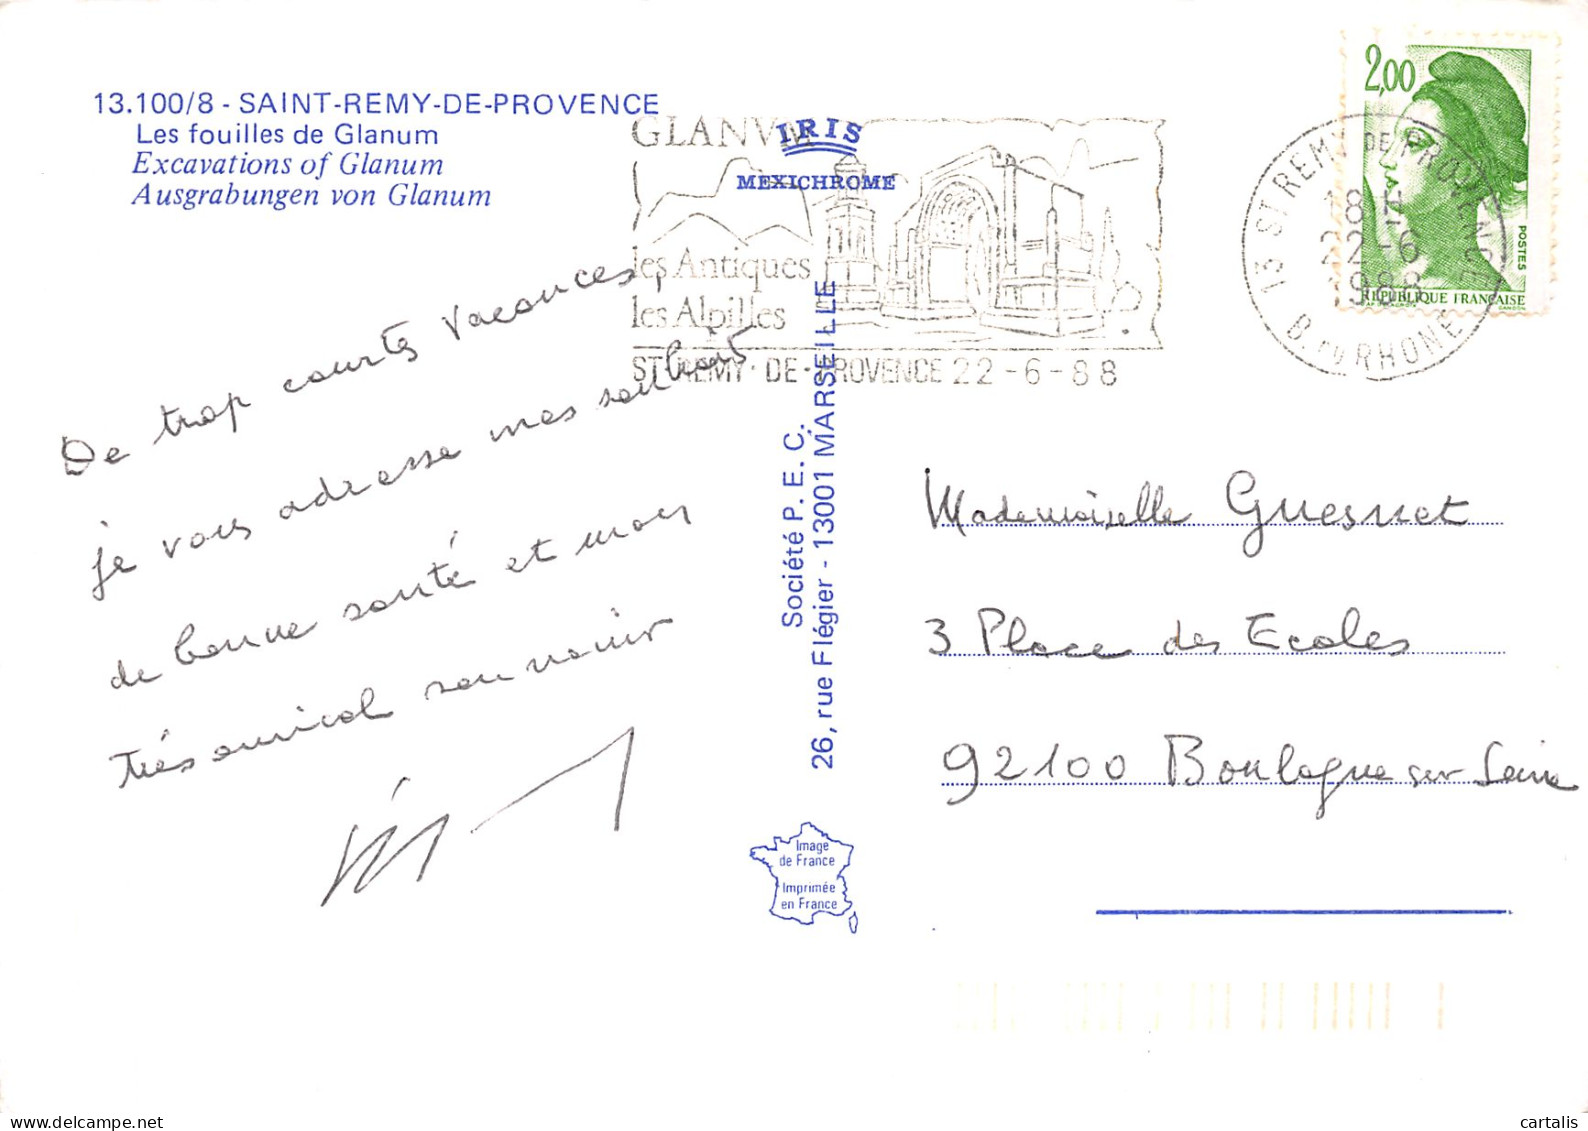 13.100/8 - SAINT-REMY-DE-PROVENCE
Les fouilles de Glanum
Excavations of Glanum
Ausgrabungen von Glanum
IRIS
MEXICHROME
GLANVM
les Antiques
les Alpilles
ST REMY-DE-PROVENCE 22-6-88
2,00
POSTES
REPUBLIQUE FRANÇAISE
GANDON
13 ST REMY DE PROVENCE
18 H
22-6
1988
B. DU RHONE
De trop courtes vacances,
je vous adresse mes souhaits
de bonne santé et mon
très amical souvenir
Société P.E.C.
26, rue Flégier - 13001 MARSEILLE
Mademoiselle Guesnet
3 Place des Ecoles
92100 Boulogne sur Seine
Image
de France
Imprimée
en France
cartalis